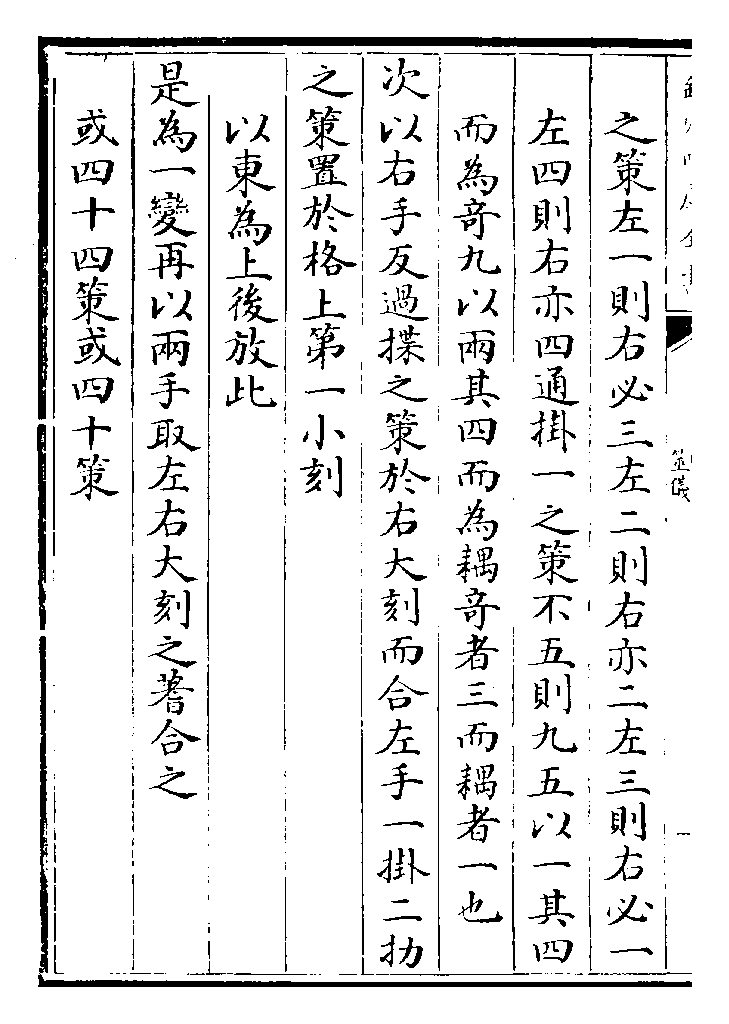 之策左一則右必三左二則右亦二左三則右必一
左四則右亦四通掛一之策不五則九五以一其四
而為奇九以兩其四而為耦奇者三而耦者一也
次以右手反過揲之策於右大刻而合左手一掛二扐
之策置於格上第一小刻
以東為上後放此
是為一變再以兩手取左右大刻之蓍合之
或四十四策或四十策
筮儀